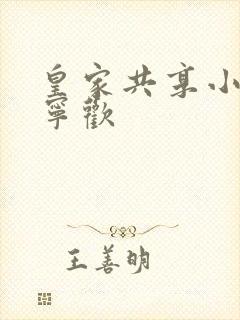 皇家共享小
寧歡
王善明